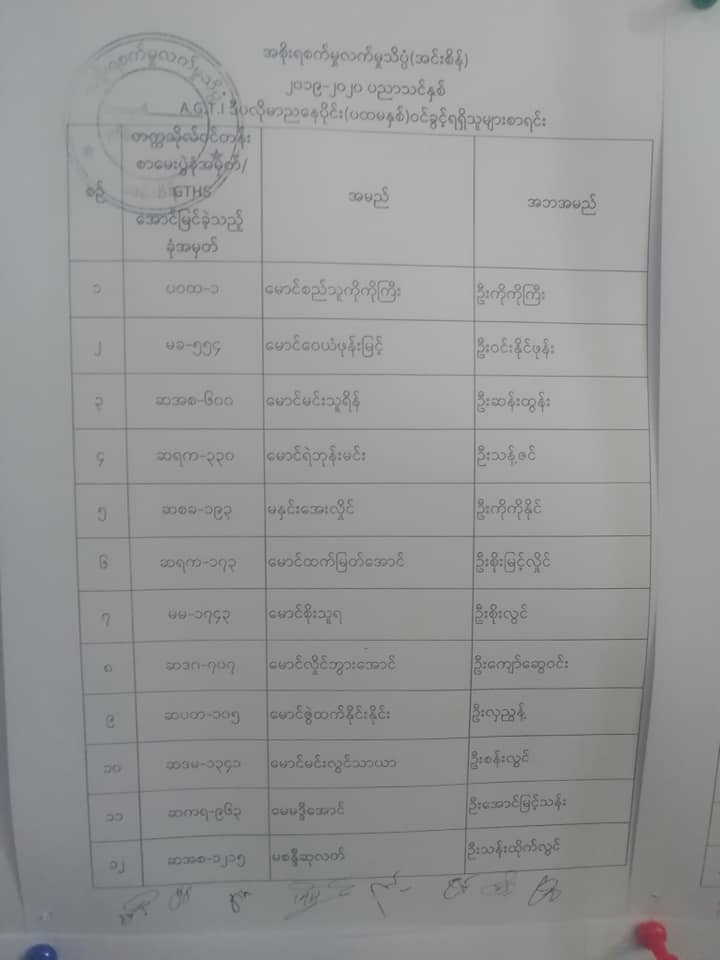 အစိုးရစက်မှုလက်မှုသိပ္ပံ(အင်းစိန်)
၂၀၁၉-၂၀၂၀ ပညာသင်နှစ်
A.G.T.I ဒီပလိုမာညနေပိုင်း(ပထမနှစ်)ဝင်ခွင့်ရရှိသူများစာရင်း
စဉ် တက္ကသိုလ်ဝင်တန်း အမည် အဘအမည်
စာမေးပွဲခုံအမှတ်/
GTHS
အောင်မြင်ခဲ့သည့်
ခုံအမှတ်
၁ ပဝထ-၁ မောင်စည်သူကိုကိုကြီး ဦးကိုကိုကြီး
၂ မခ-၅၅၄ မောင်ဝေယံဖုန်းမြင့် ဦးဝင်းနိုင်ဖုန်း
၃ ဆအစ-၆၀၀ မောင်မင်းသူရိန် ဦးဆန်းထွန်း
၄ ဆရက-၃၃၀ မောင်ရဲဘုန်းမင်း ဦးသန့်ဇင်
၅ ဆစခ-၁၉၃ မနှင်းအေးလှိုင် ဦးကိုကိုနိုင်
၆ ဆရက-၁၇၃ မောင်ထက်မြတ်အောင် ဦးစိုးမြင့်လှိုင်
၇ မမ-၁၇၄၃ မောင်စိုးသူရ ဦးစိုးလွင်
၈ ဆဒဂ-၇၀၇ မောင်လှိုင်ဘွားအောင် ဦးကျော်ဆွေဝင်း
၉ ဆပတ-၁၀၅ မောင်ဇွဲထက်နိုင်းနိုင်း ဦးလှညွန့်
၁၀ ဆဒမ-၁၃၄၁ မောင်မင်းလွင်သာယာ ဦးစန်းလွင်
၁၁ ဆကရ-၉၆၃ မေမဒ္ဒီအောင် ဦးအောင်မြင့်သန်း
၁၂ ဆအစ-၁၂၁၅ မစန္ဒီဆုလတ် ဦးသန်းထိုက်လွင်